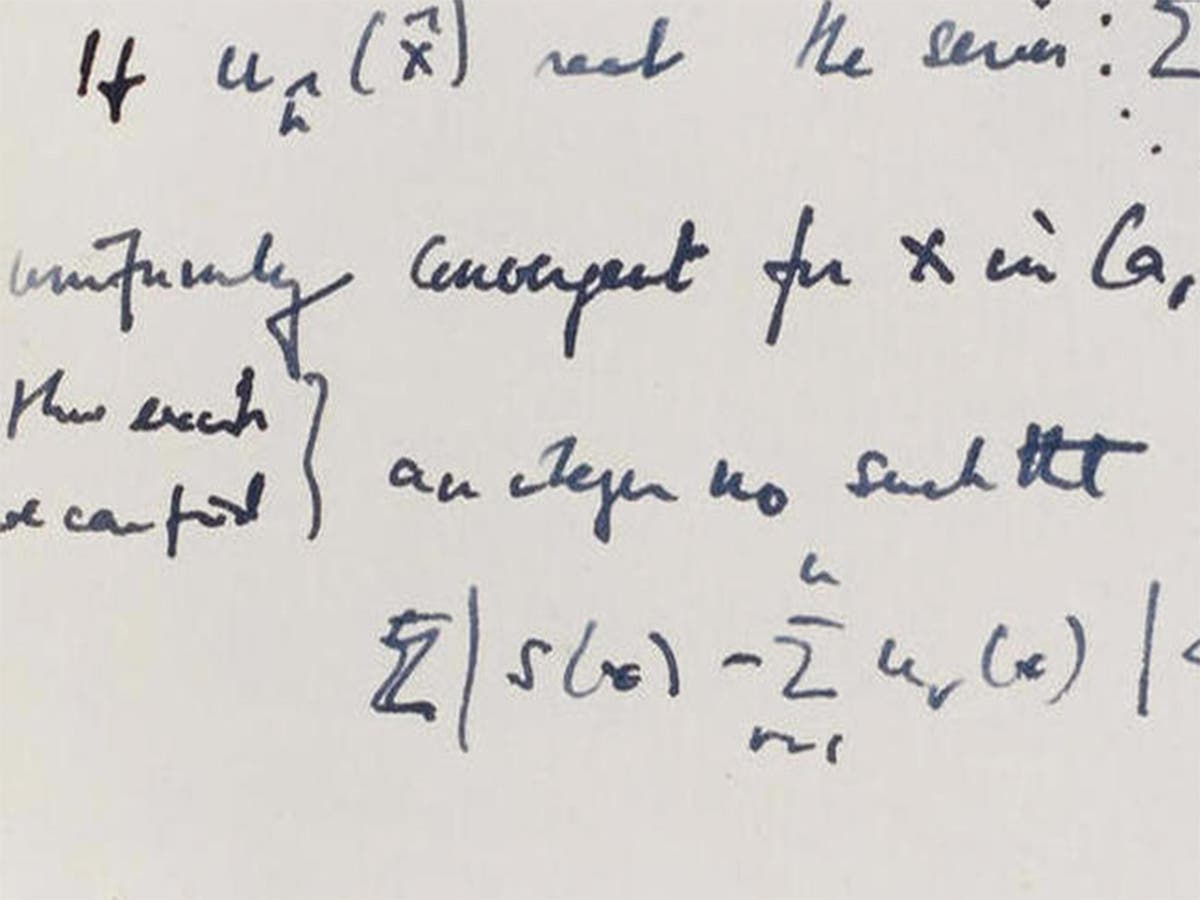 If uₙ(x) real the series: Σ
uniformly convergent for x in (a,
there exists
we can find } an integer n₀ such that
Σ| S(x) - Σ uᵣ(x) | <
n
r=1